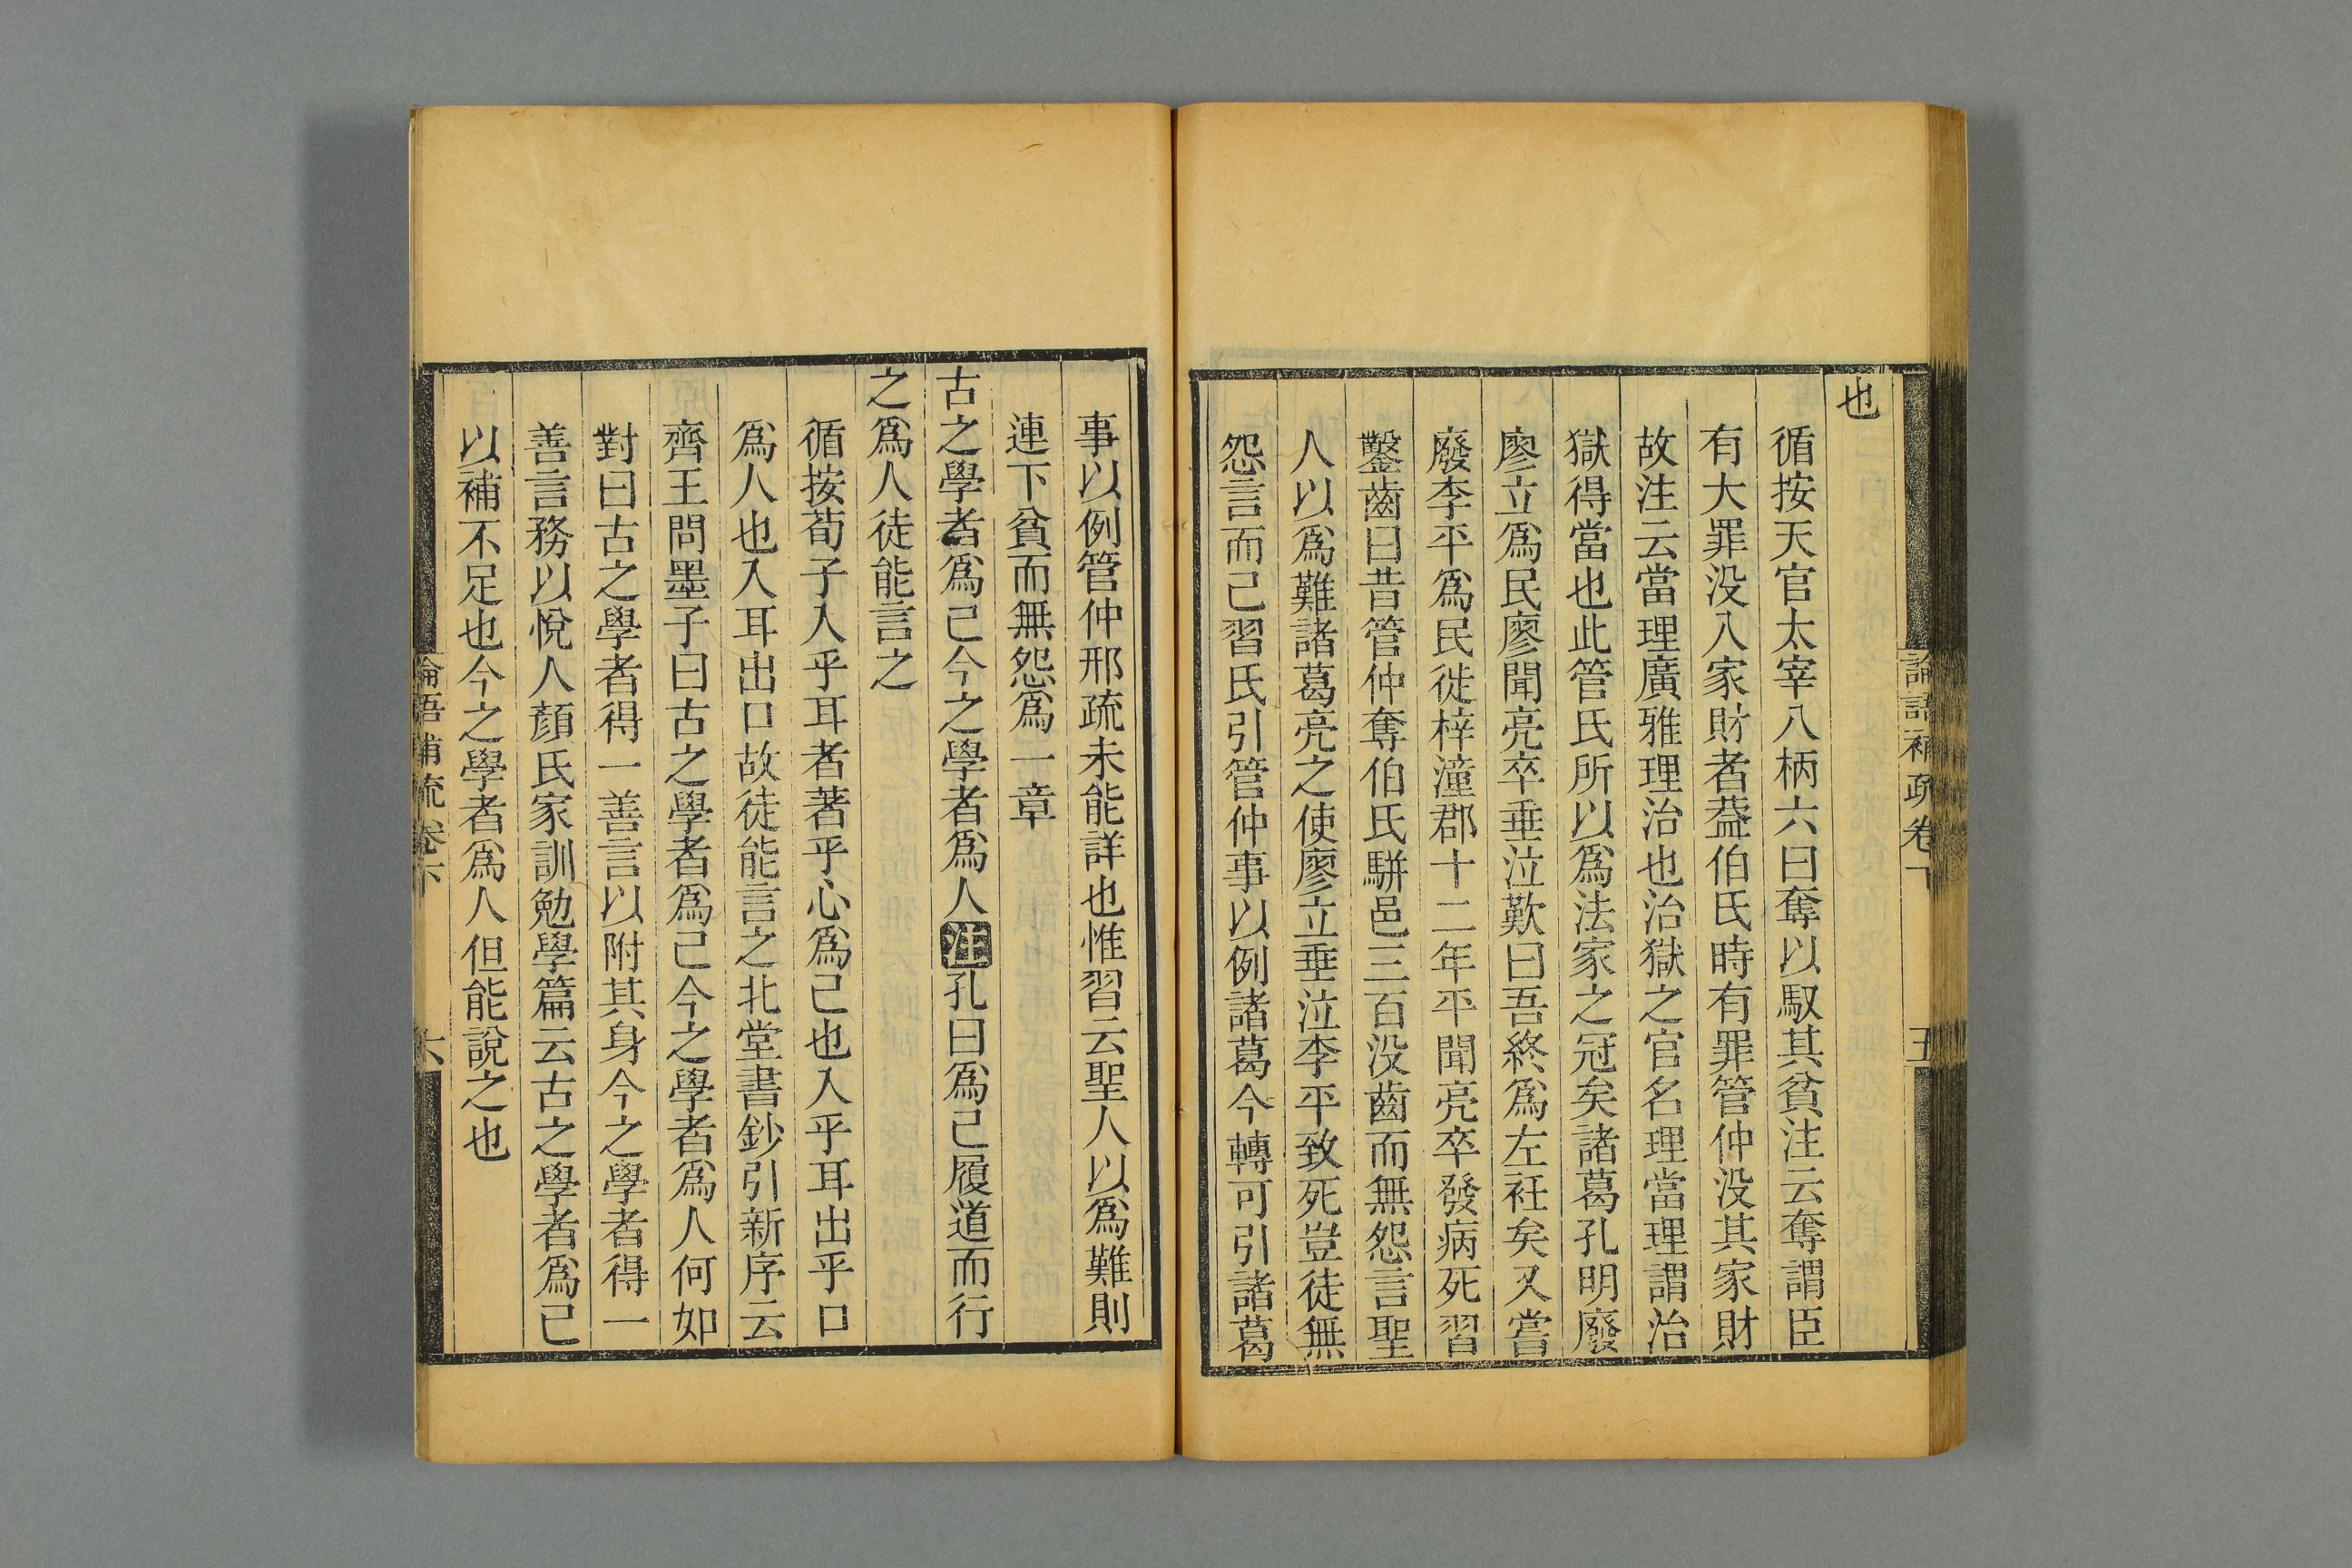 論語補疏卷下
五
也
循按天官太宰八柄六曰奪以馭其貧注云奪謂臣
有大罪没入家財者葢伯氏時有罪管仲没其家財
故注云當理廣雅理治也治獄之官名理當理謂治
獄得當也此管氏所以爲法家之冠矣諸葛孔明廢
廖立爲民廖聞亮卒垂泣歎曰吾終爲左衽矣又嘗
廢李平爲民徙梓潼郡十二年平聞亮卒發病死習
鑿齒曰昔管仲奪伯氏駢邑三百没齒而無怨言聖
人以爲難諸葛亮之使廖立垂泣李平致死豈徒無
怨言而己習氏引管仲事以例諸葛今轉可引諸葛
事以例管仲邢疏未能詳也惟習云聖人以爲難則
連下貧而無怨爲一章
古之學者爲己今之學者爲人注孔曰爲己履道而行
之爲人徒能言之
循按荀子入乎耳者著乎心爲己也入乎耳出乎口
爲人也入耳出口故徒能言之北堂書鈔引新序云
齊王問墨子曰古之學者爲己今之學者爲人何如
對曰古之學者得一善言以附其身今之學者得一
善言務以悅人顏氏家訓勉學篇云古之學者爲己
以補不足也今之學者爲人但能說之也
論語補疏卷下
六